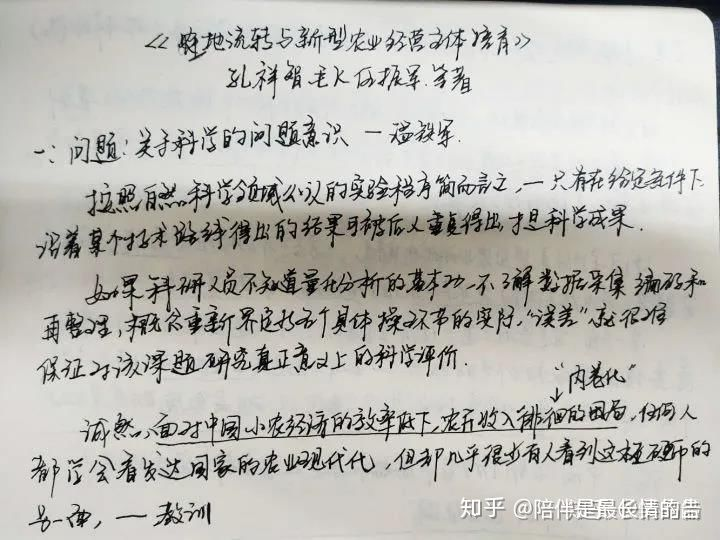 《陆地流转与新型农业经营主体培育》
孔祥智 毛 伍振军.等著
一:问题:关于科学的问题意识 — 温铁军.
按照自然科学领域公认的实验程序简而言之,—只有在给定条件下
沿着某个技术路线得出的结果可被后人重复得出,才是科学成果.
如果科研人员不知道量化分析的基本功—不了解数据采集 编码和
再整理,概念重新界定 五个具体操作环节的实际,“误差”就很难
保证对该课题研究真正意义上的科学评价.
“内卷化”
诚然,面对中国小农经济的效率低下,农民收入徘徊的困局,任何人
都学会看发达国家的农业现代化,但却几乎很少有人看到这枚硬币的
另一面,— 教训
知乎 @陪伴是最长情的告